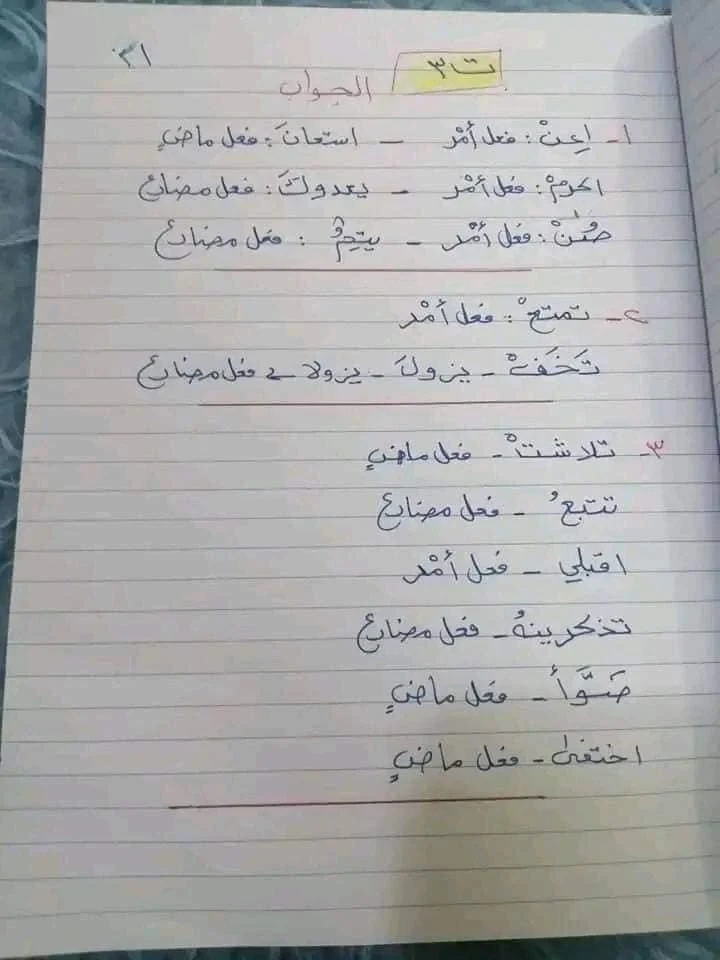 ٣١
ت٣ الجواب
١- اعِنْ : فعل أمْر – استعانَ : فعل ماضٍ
اكرمْ : فعل أمْر – يعدوكَ : فعل مضارع
صُنْ : فعل أمْر – يتيمُ : فعل مضارع
٢- تمتعْ : فعل أمْر
تَخَفْ – يزولَ – يزولا ← فعل مضارع
٣- تلاشتْ – فعل ماضٍ
تتبعُ – فعل مضارع
اقبلي – فعل أمْر
تذكرينهُ – فعل مضارع
ضَوَّأَ – فعل ماضٍ
اختفىٰ – فعل ماضٍ